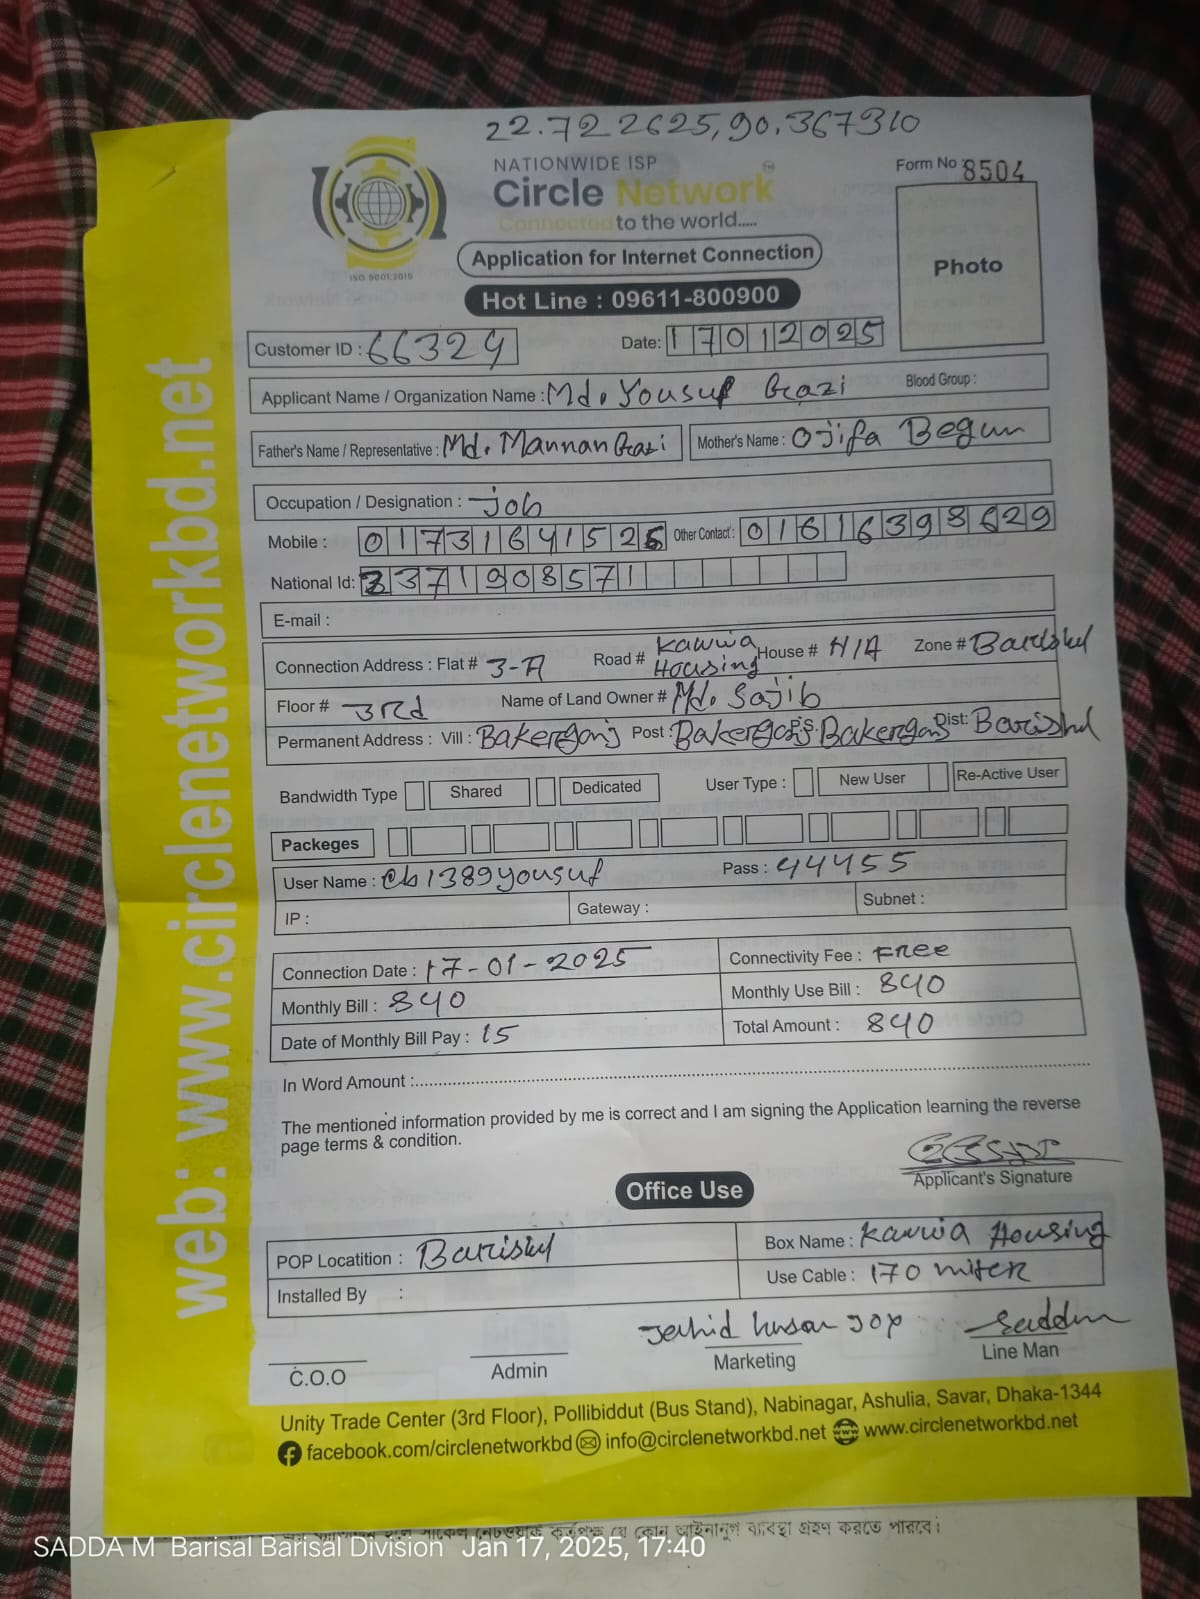 22.722625,90.367310
NATIONWIDE ISP
Circle Network
Connected to the world.....
ISO 9001:2015
Form No 8504
Photo
Application for Internet Connection
Hot Line : 09611-800900
Customer ID : 66324
Date: 17012025
Applicant Name / Organization Name : Md. Yousuf Gazi Blood Group :
Father's Name / Representative : Md. Mannan Gazi Mother's Name : Ojifa Begum
Occupation / Designation : Job
Mobile : 01731641526 Other Contact : 01616398629
National Id: 3371908571
E-mail :
Connection Address : Flat # 3-A Road # Kawwa Housing House # N/A Zone # Barishal
Floor # 3rd Name of Land Owner # Md. Sajib
Permanent Address : Vill : Bakergonj Post : Bakergonj P.S: Bakergonj Dist: Barishal
Bandwidth Type Shared Dedicated User Type : New User Re-Active User
Packeges
User Name : cb1389yousuf Pass : 44455
IP : Gateway : Subnet :
Connection Date : 17-01-2025 Connectivity Fee : Free
Monthly Bill : 840 Monthly Use Bill : 840
Date of Monthly Bill Pay : 15 Total Amount : 840
In Word Amount :
The mentioned information provided by me is correct and I am signing the Application learning the reverse
page terms & condition.
Applicant's Signature
Office Use
POP Locatition : Barishal Box Name : Kawwa Housing
Installed By : Use Cable : 170 miter
Saddam
C.O.O Admin Marketing Line Man
Unity Trade Center (3rd Floor), Pollibiddut (Bus Stand), Nabinagar, Ashulia, Savar, Dhaka-1344
facebook.com/circlenetworkbd info@circlenetworkbd.net www.circlenetworkbd.net
web: www.circlenetworkbd.net
কর্তৃপক্ষ যে কোন আইনানুগ ব্যবস্থা গ্রহণ করতে পারবে।
SADDA M Barisal Barisal Division Jan 17, 2025, 17:40